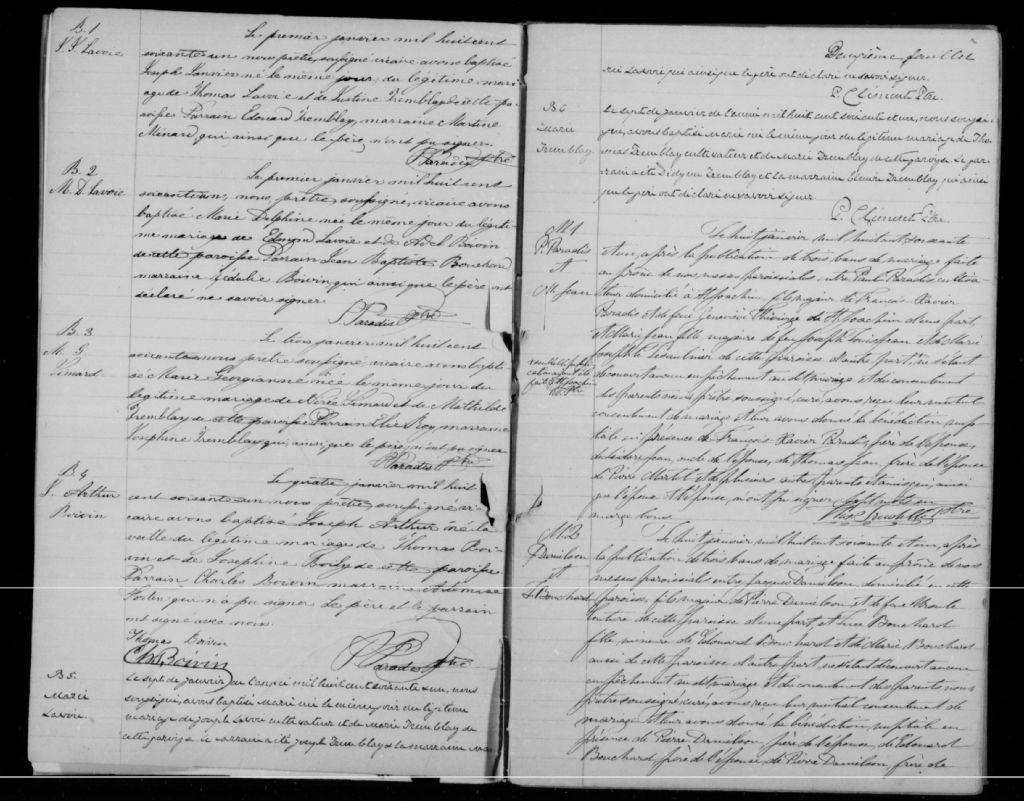 B. 1
J. J. Lavoie
Le premier janvier mil huit cent
soixante un nous prêtre soussigné vicaire avons baptisé
Joseph Janvier né le même jour, du légitime mari-
age de Thomas Lavoie et de Justine Tremblay de cette pa-
roisse Parrain Edouard Tremblay, marraine Martine
Ménard qui ainsi que le père n'ont pu signer.
P. Paradis Ptre
B. 2
M. D. Lavoie
Le premier janvier mil huit cent
soixante un, nous prêtre, soussigné, vicaire avons
baptisé Marie Delphine née le même jour du légiti-
me mariage de Edmond Lavoie et de Adèl Boivin
de cette paroisse Parrain Jean Baptiste Bouchard
marraine Zédalie Boivin qui ainsi que le père ont
déclaré ne savoir signer.
P. Paradis Ptre
B. 3
M. G.
Simard
Le trois janvier mil huit cent
soixante un nous prêtre soussigné, vicaire avons bapti-
sé Marie Georgianne née le même jour du
légitime mariage de Nérée Simard et de Mathilde
Tremblay de cette paroisse Parrain Elie Roy, marraine
Josephine Tremblay qui, ainsi que le père, n'ont pu signer
P. Paradis Ptre
B. 4
J. Arthur
Boivin
Le quatre janvier mil huit
cent soixante un nous prêtre soussigné vi-
caire avons baptisé Joseph Arthur né la
veille du légitime mariage de Thomas Boi-
vin et de Josephine Boily de cette paroisse
Parrain Charles Boivin marraine Artémise
Fortin qui n'a pu signer. Le père et le parrain
ont signé avec nous.
Thomas Boivin
Chs Boivin
P. Paradis Ptre
B 5.
Marie
Lavoie.
Le sept de janvier de l'année mil huit cent soixante un, nous
soussigné, avons baptisé Marie née le même jour du légitime
mariage de Joseph Lavoie cultivateur et de Marie Tremblay de
cette paroisse le parrain a été Joseph Tremblay et la marraine Ma-
Deuxième feuillet
rie Lavoie qui ainsi que le père ont déclaré ne savoir signer.
P. Clément Ptre.
B 6
Marie
Tremblay
Le sept de janvier de l'année mil huit cent soixante et un, nous soussi-
gné, avons baptisé Marie née le même jour du légitime mariage de Tho-
mas Tremblay cultivateur et de Marie Tremblay de cette paroisse Le par-
rain a été Didyme Tremblay et la marraine Tremblay qui ainsi
que le père ont déclaré ne savoir signer.
P. Clément Ptre.
M 1
P. Paradis
et
M. Jean
Le huit janvier mil huit cent soixante
et un, après la publication de trois bans de mariage faite
au prône de nos messes paroissiales entre Paul Paradis cultiva-
teur domicilié à St Joachim, fils majeur de François Xavier
Paradis et de feue Geneviève de St Joachim d'une part,
et Marie Jean fille majeure de feu Joseph Louis Jean et de Marie
de cette paroisse d'autre part, ne s'étant
découvert aucun empêchement au dit mariage et du consentement
des parents nous prêtre soussigné, curé, avons reçu leur mutuel
consentement de mariage et leur avons donné la bénédiction nup-
tiale en présence de François Xavier Paradis, père de l'époux,
de Isidore Jean, oncle de l'épouse, de Thomas Jean, frère de l'épouse
de Pierre Martel et de plusieurs autres parents et amis qui, ainsi
que l'époux et l'épouse, n'ont pu signer. Sept mots en
marge bons.
Ptre
M 2
Danielson
et
L. Bouchard
Le huit janvier mil huit cent soixante et un, après
la publication de trois bans de mariage faite au prône de nos
messes paroissiales entre Jacques Danielson, domicilié en cette
paroisse, fils majeur de Pierre Danielson et de feue Ursule
de cette paroisse d'une part et Luce Bouchard
fille mineure de Edouard Bouchard et de Marie Bouchard
aussi de cette paroisse d'autre part, ne s'étant découvert aucun
empêchement au dit mariage et du consentement des parents nous
prêtre soussigné curé, avons reçu leur mutuel consentement de
mariage et leur avons donné la bénédiction nuptiale en
présence de Pierre Danielson père de l'époux, de Edouard
Bouchard père de l'épouse, de Pierre Danielson, frère de